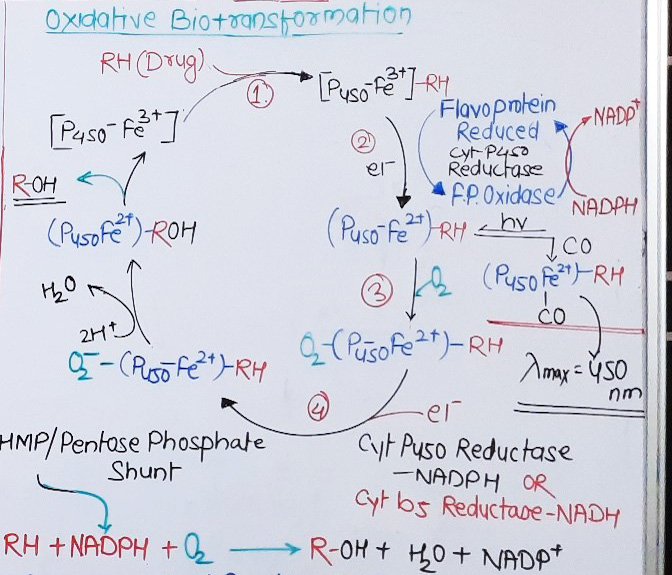 Oxidative Biotransformation
RH (Drug)
①
[P450-Fe3+]-RH
[P450-Fe3+]
Flavoprotein
Reduced
Cyt-P450
Reductase
F.P. Oxidase
NADP+
NADPH
②
er
R-OH
(P450Fe2+)-ROH
(P450-Fe2+)-RH
hν
CO
(P450Fe2+)-RH
CO
H2O
2H+
③
O2
O2-(P450Fe2+)-RH
λmax = 450
nm
O2-(P450-Fe2+)-RH
④
er
HMP/Pentose Phosphate
Shunt
Cyt P450 Reductase
-NADPH OR
Cyt b5 Reductase-NADH
RH + NADPH + O2 → R-OH + H2O + NADP+